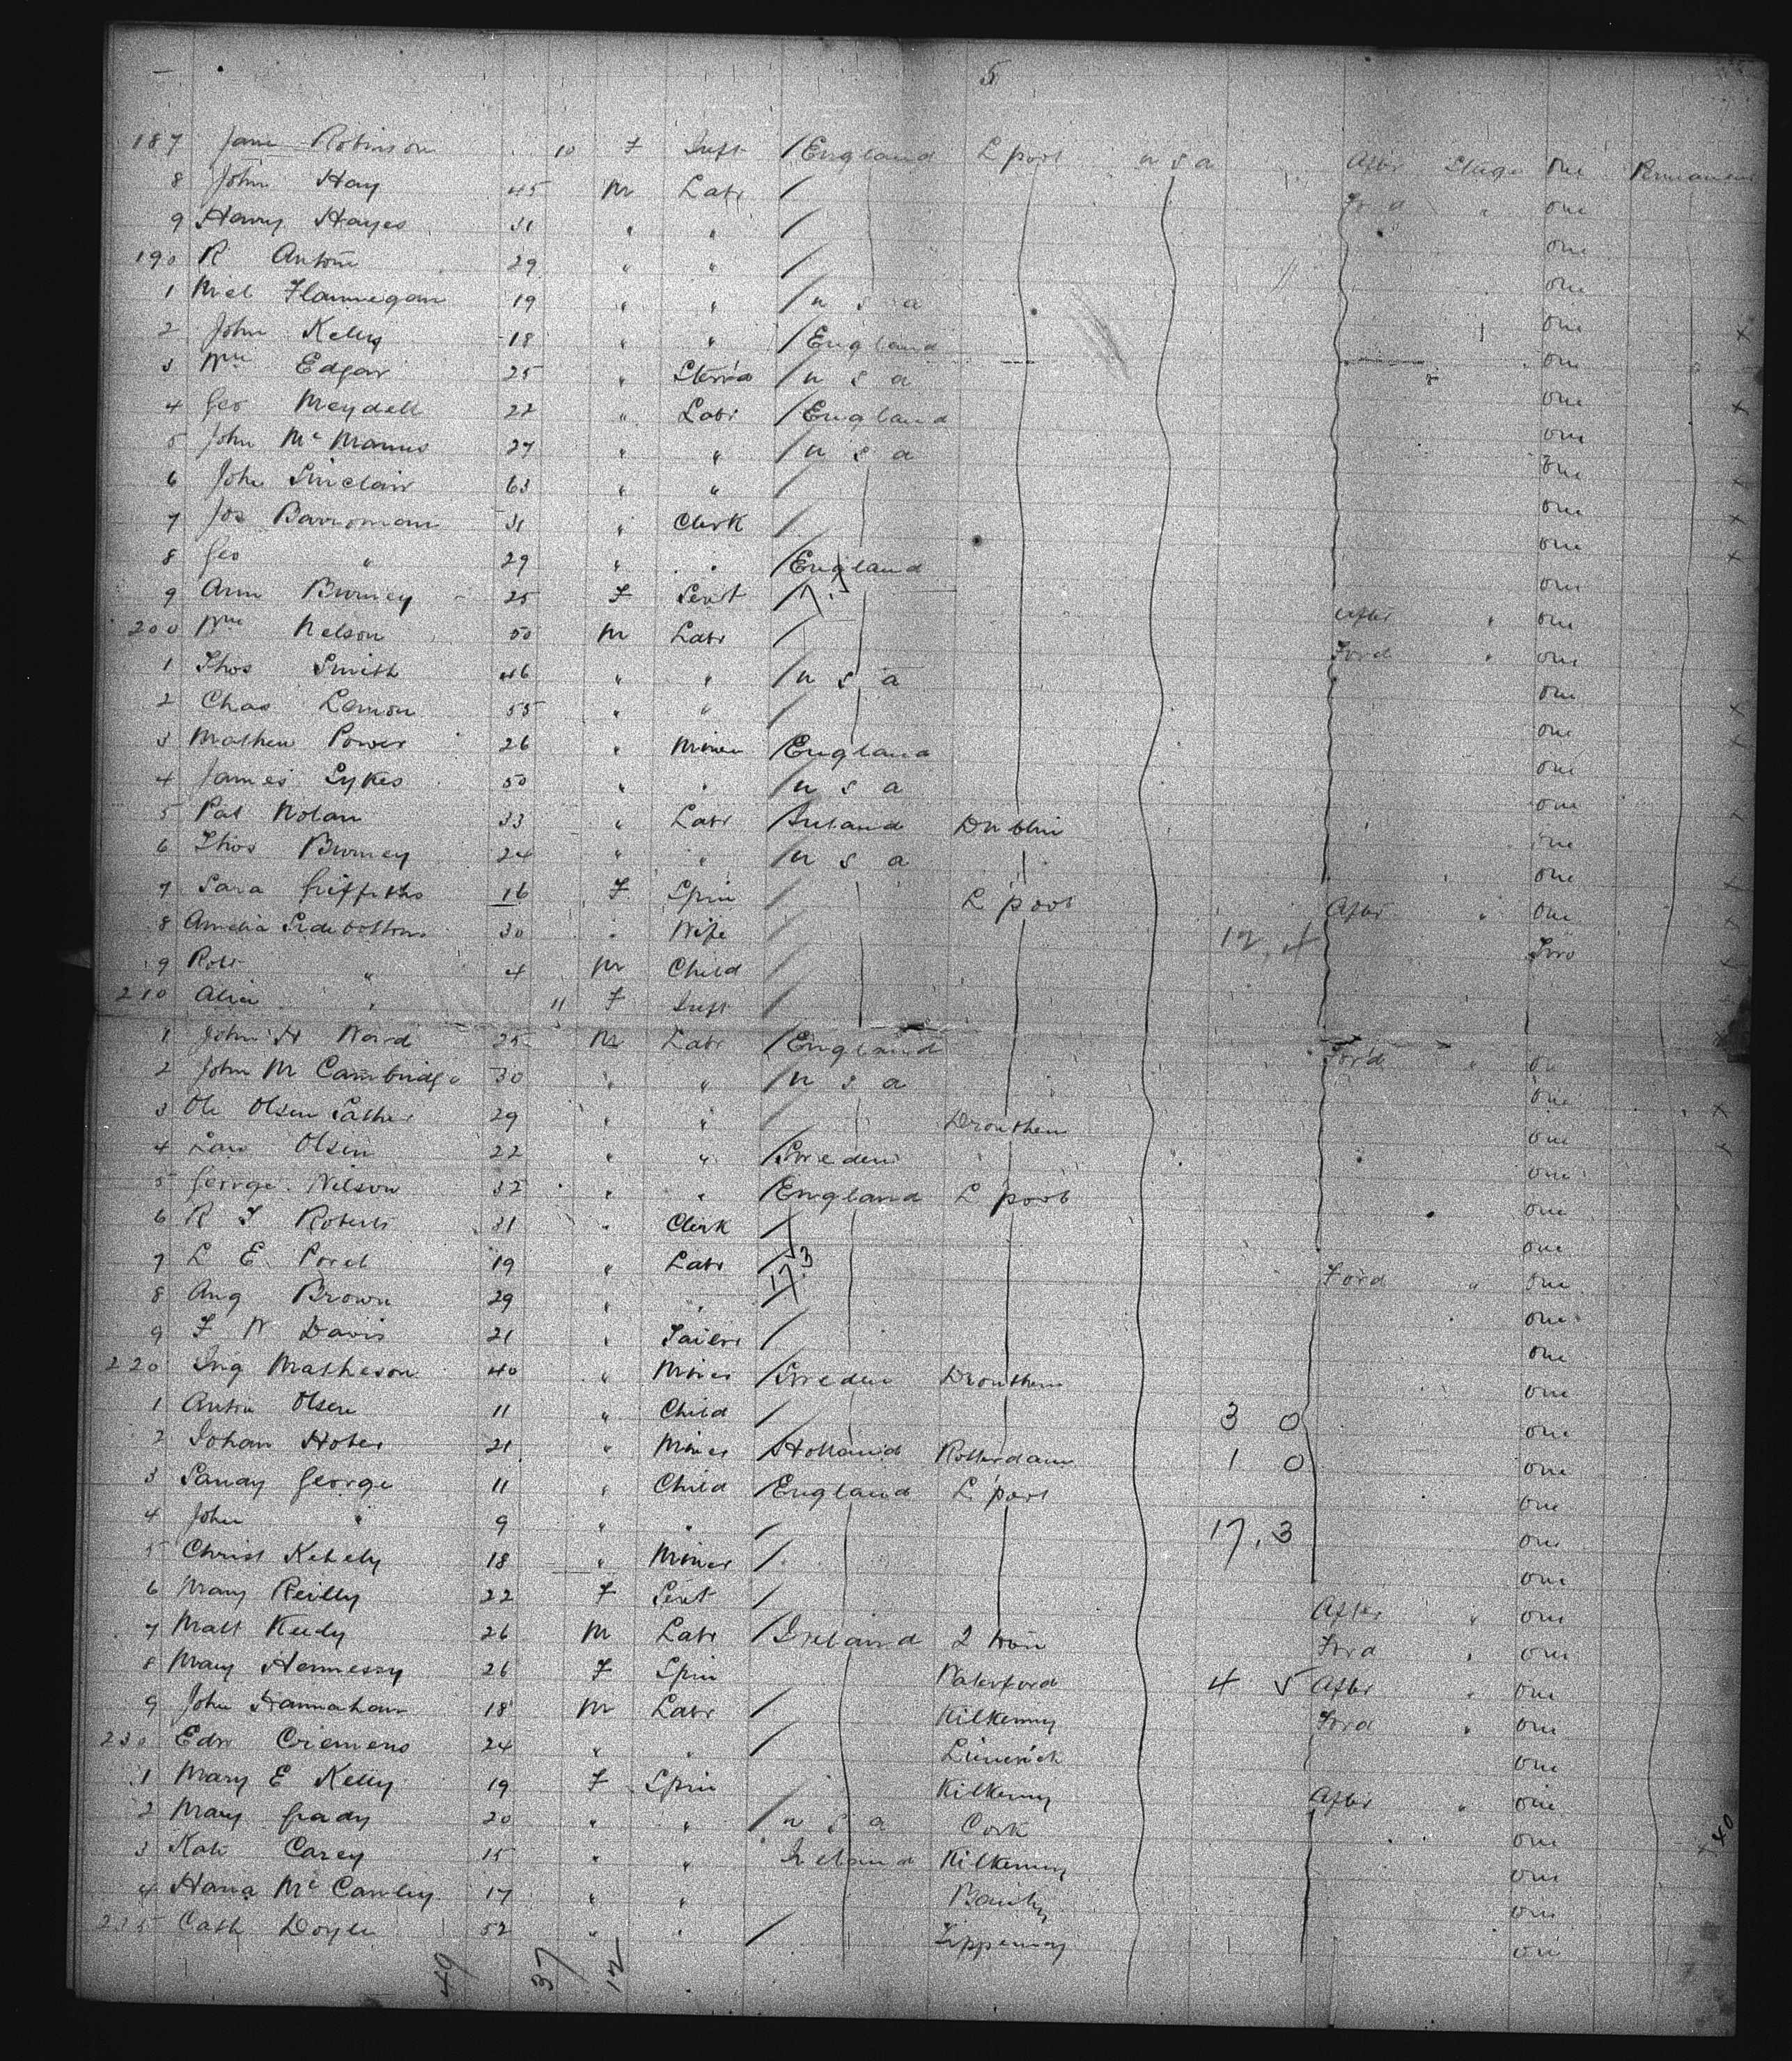 5
187 Jane Robinson 10 F Inft / England L pool u s a After Stage One Permanent
8 John Hay 45 M Labr / Ford " one
9 Henry Hayes 31 " " / one
190 R Antoni 29 " " / one
1 Mcl Flannegan 19 " " / u s a one x
2 John Kelly 18 " " / England one
3 Wm Edgar 25 " / u s a one x
4 Geo Meydell 22 " Labr / England one
5 John Mc Manus 27 " " / u s a one x
6 John Sinclair 63 " " / one x
7 Jos Barroman 31 " Clerk / one x
8 Geo " 29 " " / England one
9 Ann Burney 25 F Servt / After " one
200 Wm Nelson 50 M Labr / Ford " one
1 Thos Smith 46 " " / u s a one x
2 Chas Lemon 55 " " / one x
3 Mathew Power 26 " Miner / England one
4 James Sykes 50 " " / u s a one x
5 Pat Nolan 33 " Labr / Ireland Dublin one
6 Thos Burney 24 " " / u s a one x
7 Sara Griffiths 16 F Spin / L pool After " one x
8 Amelia Sidebottom 30 " Wife / 12 4 Two x
9 Robt " 4 M Child /
210 Alice " 11 F Inft /
1 John H Ward 25 M Labr / England Ford " on
2 John M Cambridge 30 " " / u s a one x
3 Ole Olsen Sather 29 " " / Dronthem one
4 Law Olsen 22 " " / Sweden one
5 George Nilson 32 " " / England L pool one
6 R J Roberts 31 " Clerk / one
7 L E Porel 19 " Labr / 17.3 Ford " one
8 Aug Brown 29 " " / one
9 F W Davis 21 " Tailor / one
220 Ing Matheson 40 " Miner / Sweden Dronthem one
1 Anton Olsen 11 " Child / 3 0 one
2 Johan Hotes 21 " Miner / Holland Rotterdam 1 0 one
3 Sandy George 11 " Child / England L pool one
4 John " 9 " " / 17.3 one
5 Christ Kehely 18 " Miner / one
6 Mary Reilly 22 F Servt / After " one
7 Matt Keedy 26 M Labr / Ireland Ford " one
8 Mary Hennessy 26 F Spin Waterford 4 5 After " one
9 John Hannahan 18 M Labr / Kilkenny Ford " one
230 Edw Cremens 24 " " / Limerick one
1 Mary E Kelly 19 F Spin / Kilkenny After " one
2 Mary Grady 20 " " / u s a Cork one
3 Kate Carey 15 " " Ireland Kilkenny one x 40
4 Hana Mc Cawley 17 " " one
235 Cath Doyle 52 " " / Tipperary one
49 37 12